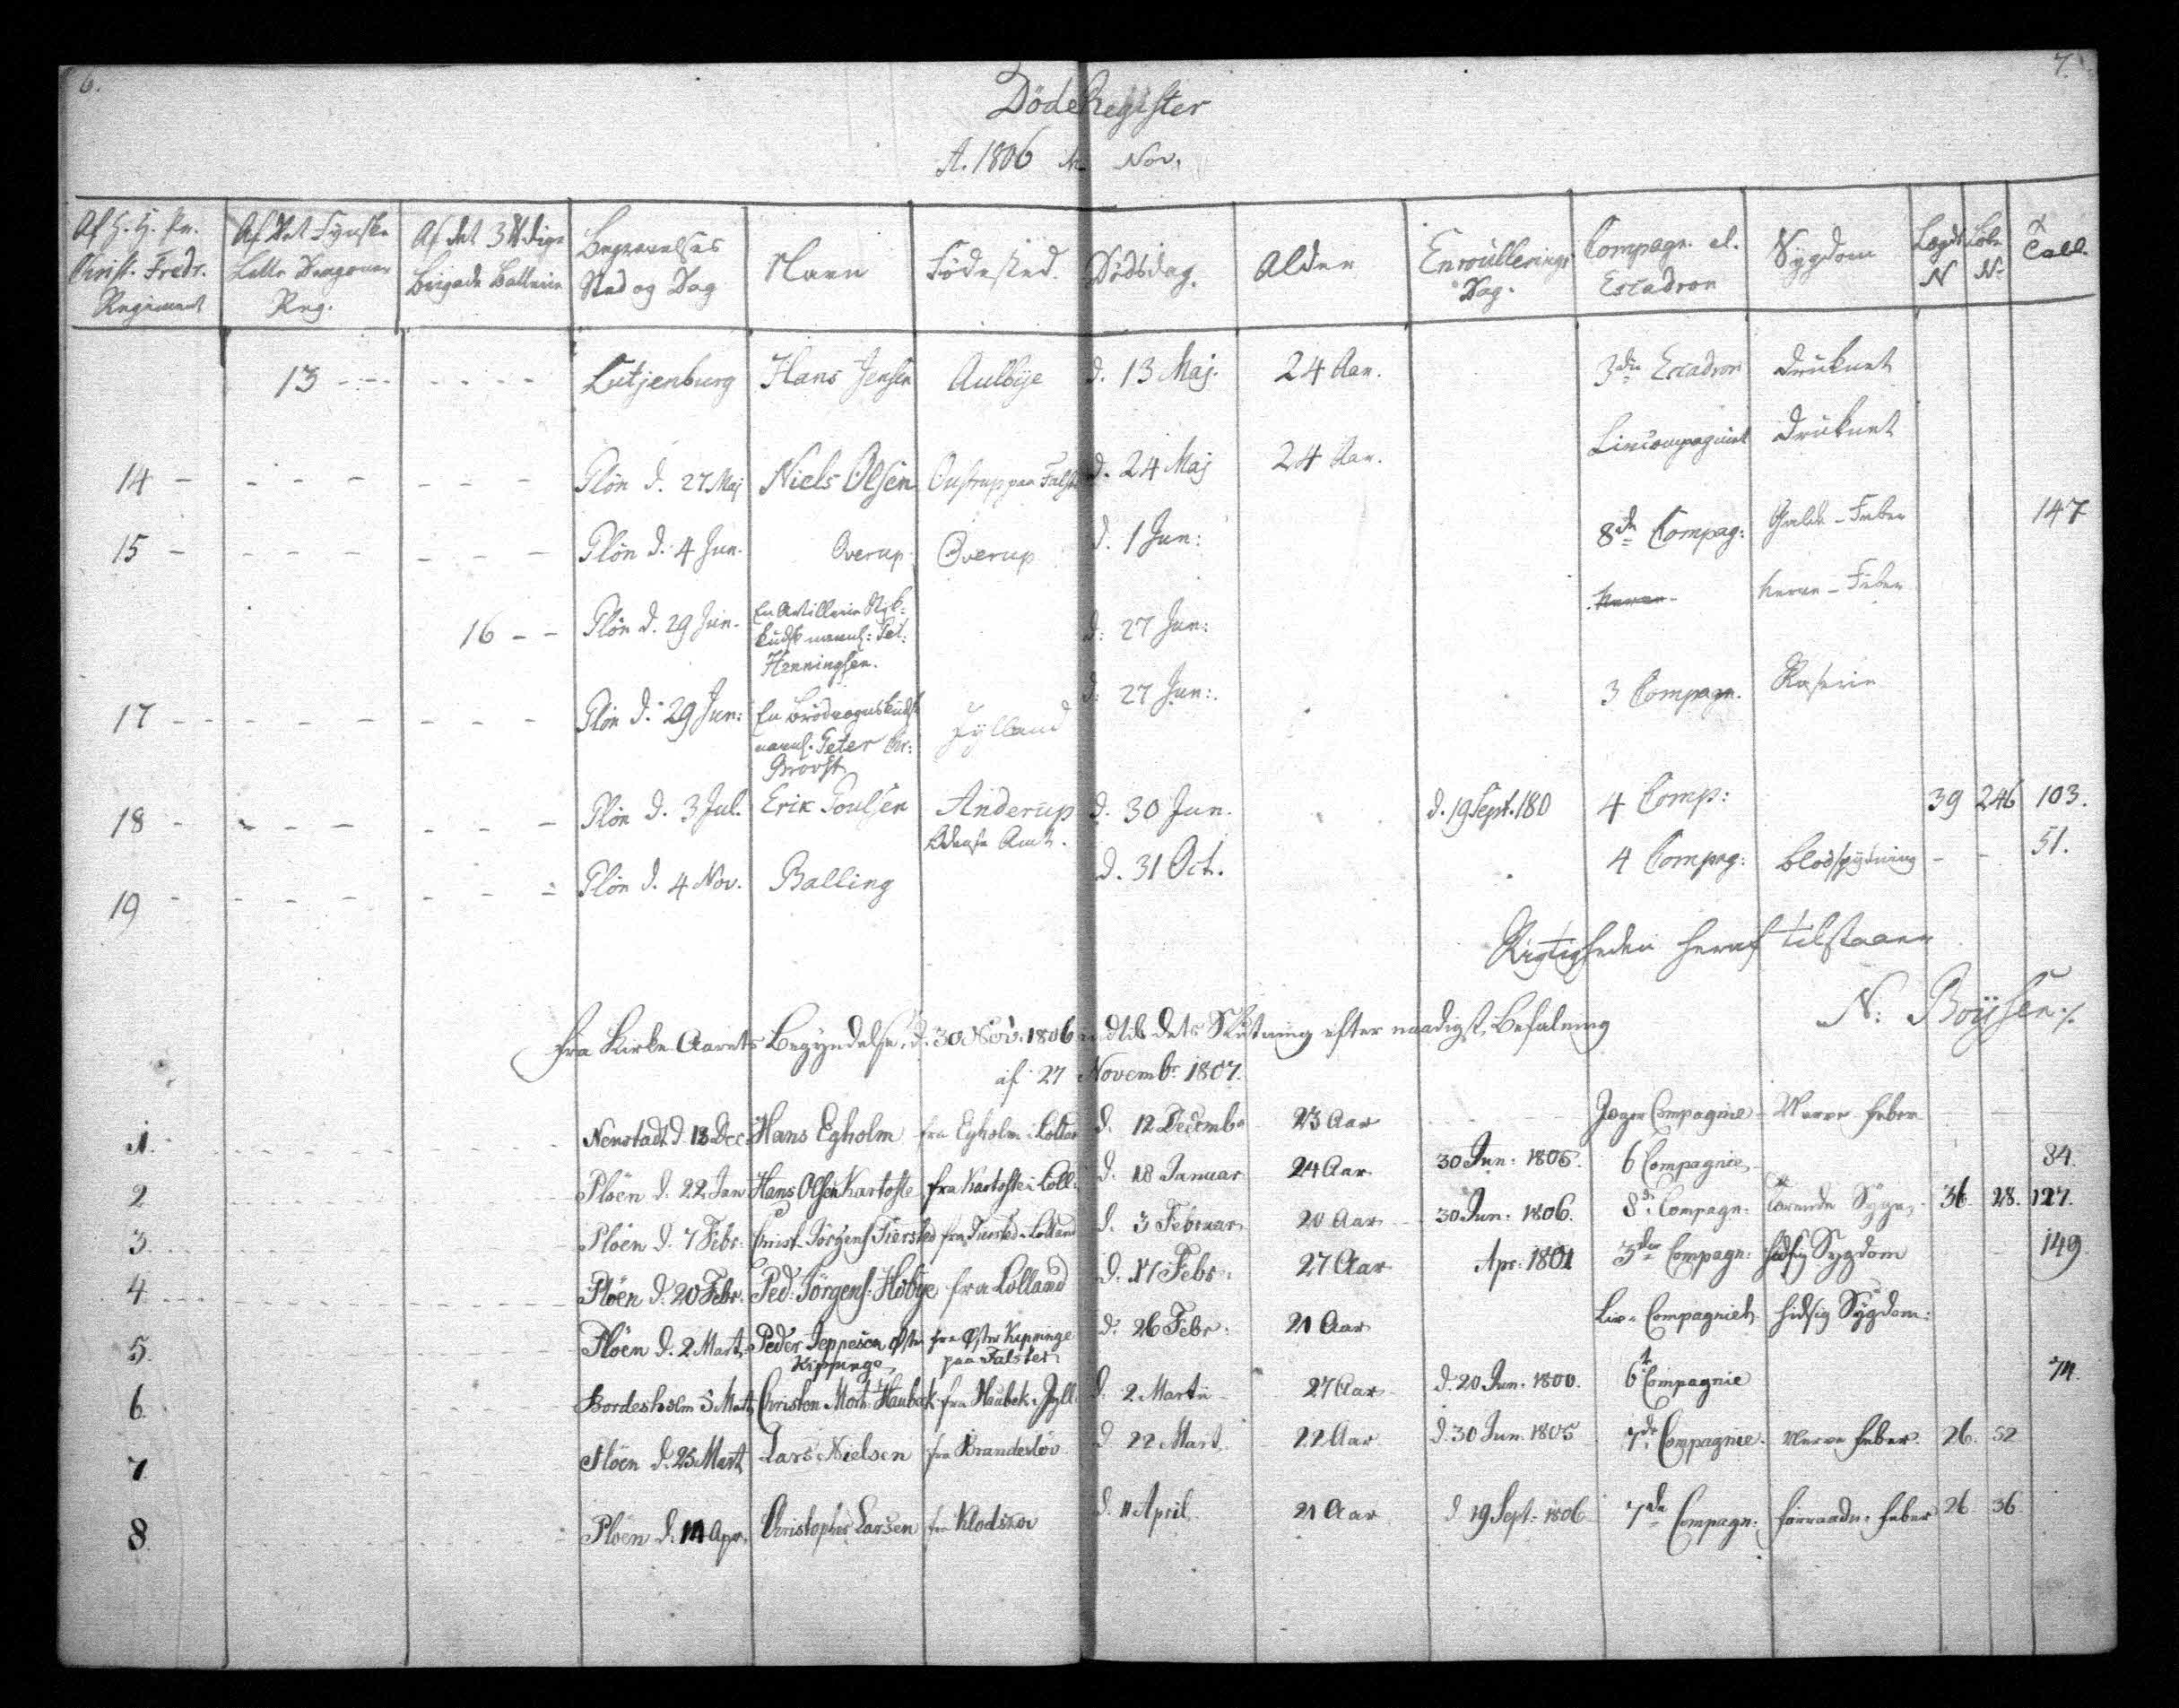 6.
7.
Döderegister
A. 1806 Nov.
Af H. H. Pr. Christ. Fredr. Regiment | Af Det Fynske Lette Dragoner Reg. | Af det 3 Brigade Batterie | Begravelses Stad og Dag | Navn | Födested | Dödsdag. | Alder | Enroullerings Dag. | Compagn. el. Escadron | Sygdom | Lægds N | Löbe No | Tall
13 | Lutjenburg | Hans Jensen | Aulbye | d. 13 Maj. | 24 Aar. | 3die Escadron | Druknet
14 | Plön d. 27 Maj | Niels Olsen | paa Falst | d. 24 Maj | 24 Aar. | Livcompagniet | Druknet
15 | Plön d. 4 Jun. | Overup | Overup | d. 1 Jun: | 8de Compag: | Galde-Feber | 147
16 | Plön d. 29 Jun. | En Artillerie kudsk navnl: Pet: Henningsen. | d: 27 Jun: | Nerve-Feber
17 | Plön d. 29 Jun: | En Brödvognskudsk navnl. Peter Chr: Brovst | Jylland | d: 27 Jun: | 3 Compagn. | Raserie
18 | Plön d. 3 Jul. | Erik Poulsen | Anderup Odense Amt. | d. 30 Jun. | d. 19 Sept. 180 | 4 Comp: | 39 | 246 | 103.
19 | Plön d. 4 Nov. | Balling | d. 31 Oct. | 4 Compag: | Blodspytning | 51.
Rigtigheden heraf tilstaaer
N: Boysen
Fra Kirke Aarets Begyndelse, d. 30 Nov. 1806 indtil dets Slutning efter naadigst Befalning
af 27 Novembr 1807.
1. | Neustadt d. 18 Dec | Hans Egholm | fra Egholm i Lolland | d. 12 Decembr | 23 Aar | Jæger Compagnie | Nerve feber
2 | Plöen d. 22 Jan | Hans Olsen Kartofte | fra Kartofte i Loll: | d. 18 Januar | 24 Aar | 30 Jun: 1805. | 6 Compagnie | 84.
3. | Plöen d. 7 Febr. | Christ. Jörgens. Tiersted | fra Tiersted i Lolland | d. 3 Februar | 20 Aar | 30 Jun: 1806. | 8de Compagn: | Tærende Syge, | 36 | 28. | 127.
4. | Plöen d. 20 Febr. | Ped: Jörgens. Höbye | fra Lolland | d. 17 Febr. | 27 Aar | Apr: 1801 | Compagn: | hidsig Sygdom | 149
5. | Plöen d. 2 Mart. | Peder Jeppesen Öster Kippinge | fra Öster Kippinge paa Falster | d. 26 Febr: | 21 Aar | Liv-Compagniet | hidsig Sygdom:
6. | Bordesholm 5 Mart. | Christen Mort: Haubek | fra Haubek i Jyll: | d. 2 Martii | 27 Aar | d. 20 Jun. 1800. | 6te Compagnie | 74.
7 | Plöen d. 25 Mart | Lars Nielsen | fra Branderslöv | d. 22 Mart. | 22 Aar | d. 30 Jun. 1805 | 7de Compagnie | Nerve feber. | 26. | 52
8 | Plöen d. 14 Apr. | Christopher Larsen | fra Klodskov | d. 11 April | 21 Aar | d 19 Sept: 1806 | 7de Compagn: | forraadn. feber | 26. | 36.